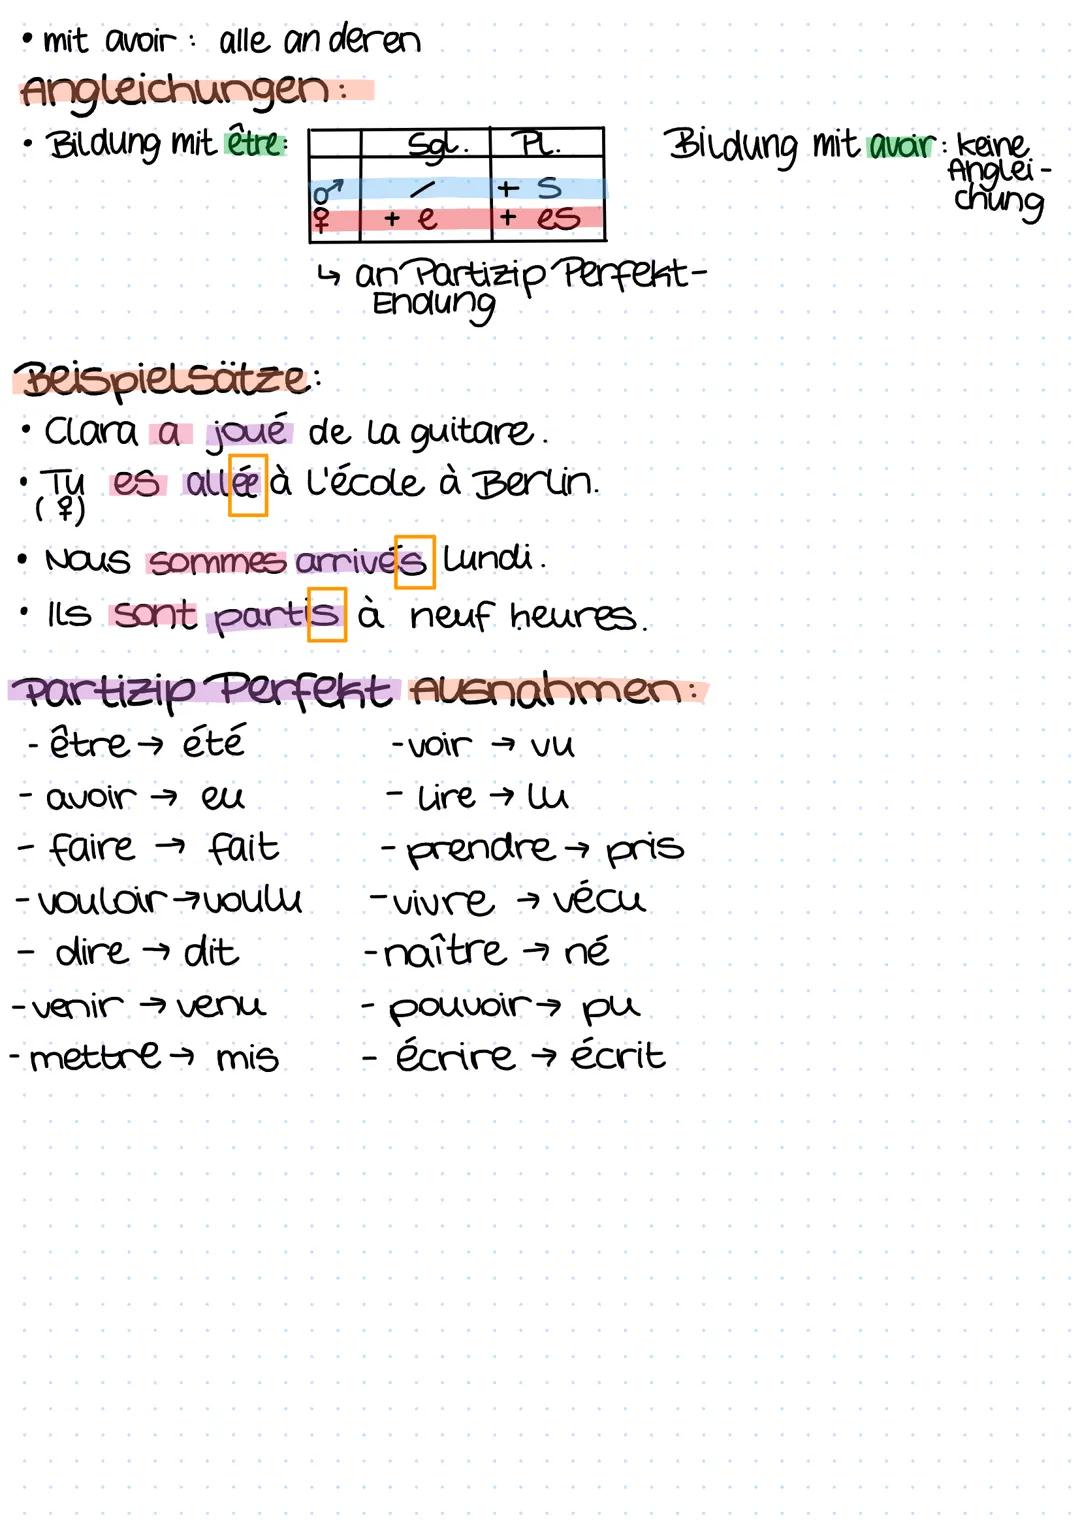 • mit avoir : alle anderen
Angleichungen:
• Bildung mit être:
Sgl. Pl.
♂ / + s
♀ + e + es
↳ an Partizip Perfekt-
Endung
Bildung mit avoir : keine
Anglei-
chung
Beispielsätze:
• Clara a joué de la guitare.
• Tu es allée à l'école à Berlin.
(♀)
• Nous sommes arrivés Lundi.
• Ils sont partis à neuf heures.
Partizip Perfekt Ausnahmen:
- être → été
- avoir → eu
- faire → fait
- vouloir → voulu
- dire → dit
- venir → venu
- mettre → mis
- voir → vu
- lire → lu
- prendre → pris
- vivre → vécu
- naître → né
- pouvoir → pu
- écrire → écrit